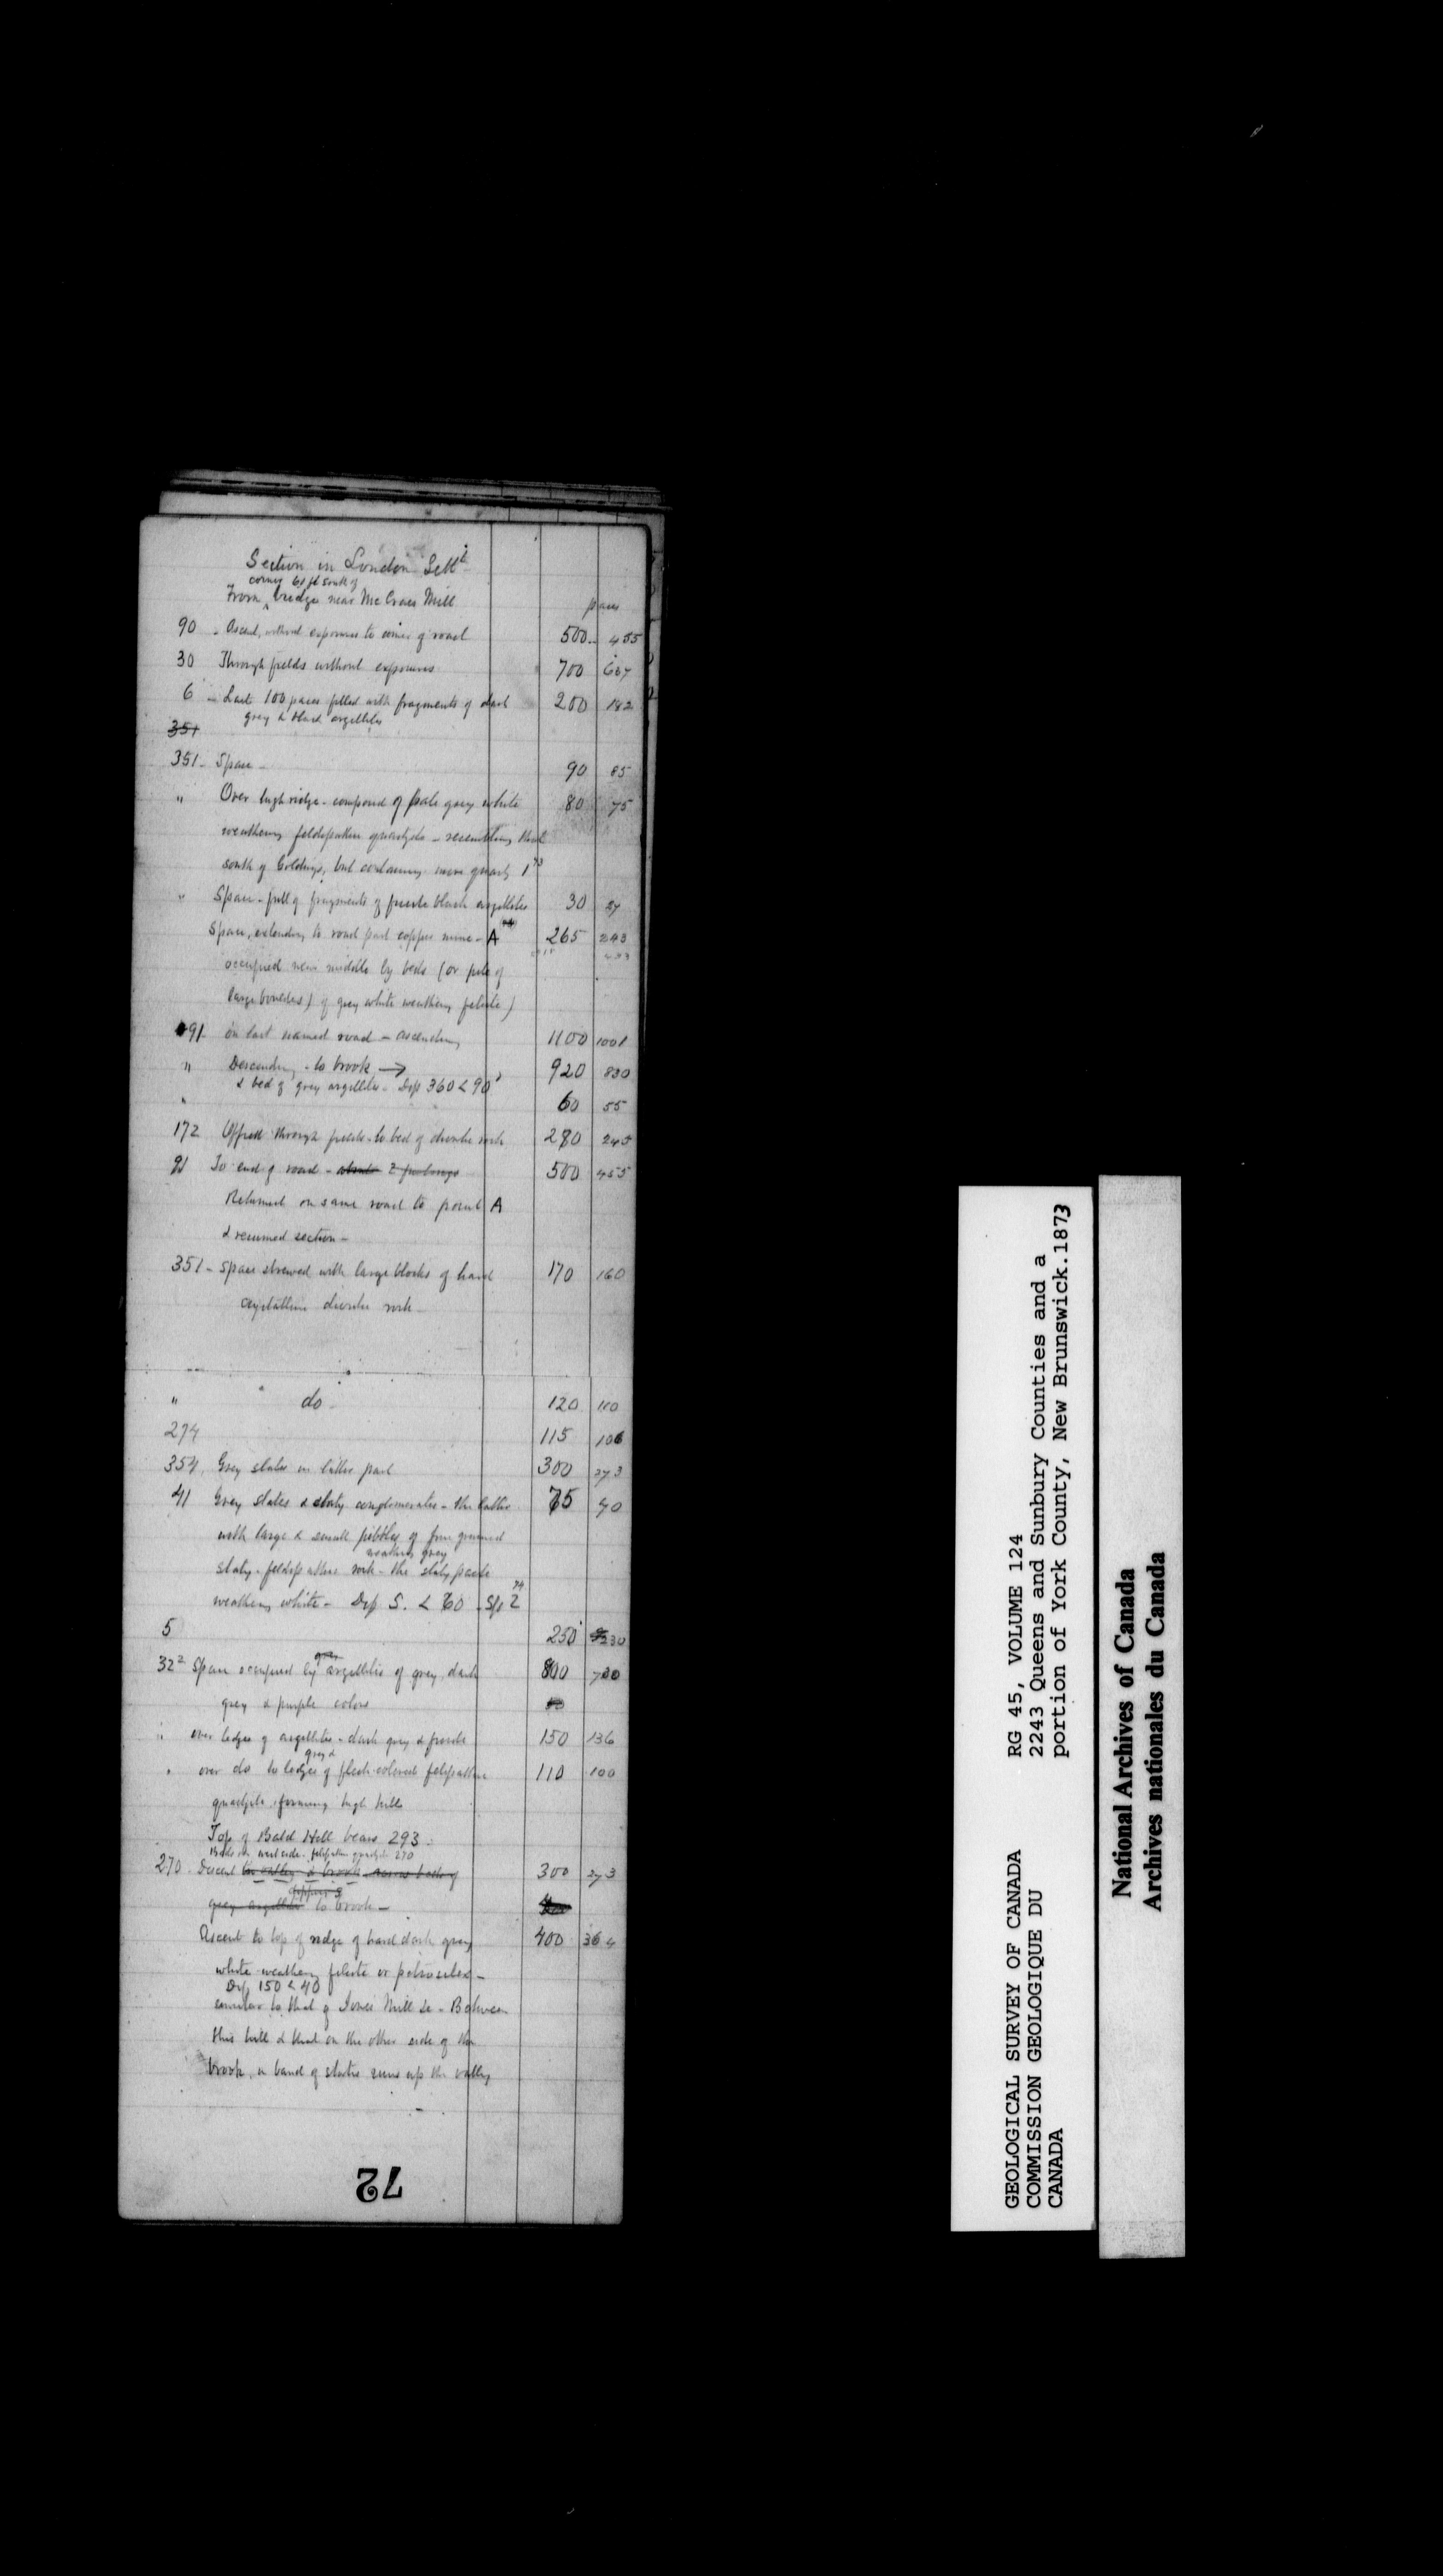 Section in London Settt
corner 61 ft south of
From bridge near McCraes Mill
paces
90 - Ascend, without exposures to corner of road 500 - 455
30 Through fields without exposures 700 637
6 - Last 100 paces filled with fragments of dark 200 182
grey & black argillites
351
351 - Space - 90 85
" Over high ridge - composed of pale grey white 80 75
weathering feldspathic quartzite - resembling that
south of Coldings, but containing more quartz 1 73
" Space - full of fragments of purple black argillites 30 27
Space, extending to road past copper mine - A 265 243
occupied near middle by beds (or pile of
large boulders) of grey white weathering felsite)
91 - on last named road - ascending 1100 1001
" Descending - to brook → 920 830
& bed of grey argillites - Dip 360 < 90°
" 60 55
172 Offset through fields to bed of dioritic rock 280 245
91 To end of road - about 2 furlongs 500 455
Returned on same road to point A
& resumed section -
351 - Space strewed with large blocks of hard 170 160
crystalline dioritic rock -
" do - 120 110
274 115 106
354. Grey slates in latter part 300 273
41 Grey slates & slaty conglomerates - the latter 75 70
with large & small pebbles of fine grained
weathering grey
slaty - feldspathic rock - the slaty parts
weathering white - Dip S. < 60 - Sp 2 74
5 250 230
32² Space occupied by argillites of grey, dark 800 730
grey & purple colors
" over ledges of argillites - dark grey & purple 150 136
grey &
" over do to ledges of flesh-colored felspathic 110 100
quartzite, forming high hill
Top of Bald Hill bears 293 -
Beds on west side - felspathic quartzite 270
270 - Descent to valley & brook across beds of 300 273
grey argillites to brook -
Ascent to top of ridge of hard dark grey 400 364
white-weathering felsite or petrosilex -
Dip 150 < 40
similar to that of Jones Mill &c - Between
this hill & that on the other side of the
brook, a band of slates runs up the valley
72
GEOLOGICAL SURVEY OF CANADA RG 45, VOLUME 124
COMMISSION GEOLOGIQUE DU 2243 Queens and Sunbury Counties and a
CANADA portion of York County, New Brunswick.1873
National Archives of Canada
Archives nationales du Canada